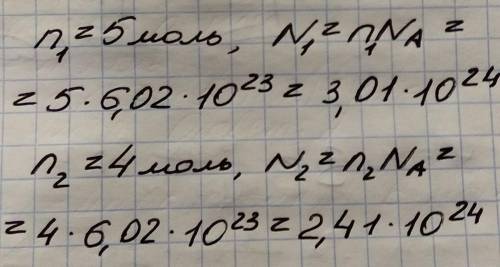 n₁ = 5 моль, N₁ = n₁N_A =
= 5 · 6,02 · 10²³ = 3,01 · 10²⁴
n₂ = 4 моль, N₂ = n₂N_A =
= 4 · 6,02 · 10²³ = 2,41 · 10²⁴